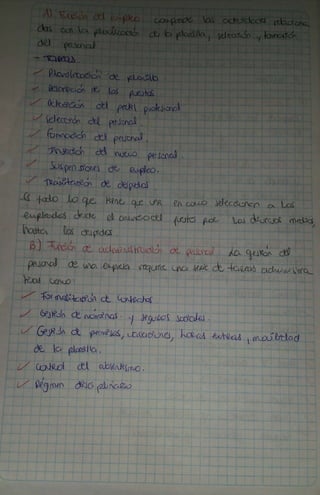 A) Función del empleo comprende las actividades relaciona
das con la planificación de la plantilla, selección y formación
del personal
- TAREAS
✓ Planificación de plantilla
✓ Descripción de los puestos
✓ Detección del perfil profesional
✓ Selección del personal
✓ Formación del personal.
✓ Inserción del nuevo personal
✓ Suspensiones de empleo.
✓ Tramitación de despidos
Es todo lo que tiene que ver en como seleccionan a los
empleados desde el anuncio del puesto por los diversos medios,
hasta los despidos.
B) Función de administración de personal La gestión del
personal de una empresa requiere una serie de tareas administra
tivas como:
✓ Formalización de contratos
✓ Gestión de nóminas y seguros sociales.
✓ Gestión de permisos, vacaciones, horas extras, movilidad
de la plantilla.
✓ control del absentismo.
✓ Régimen disciplinario